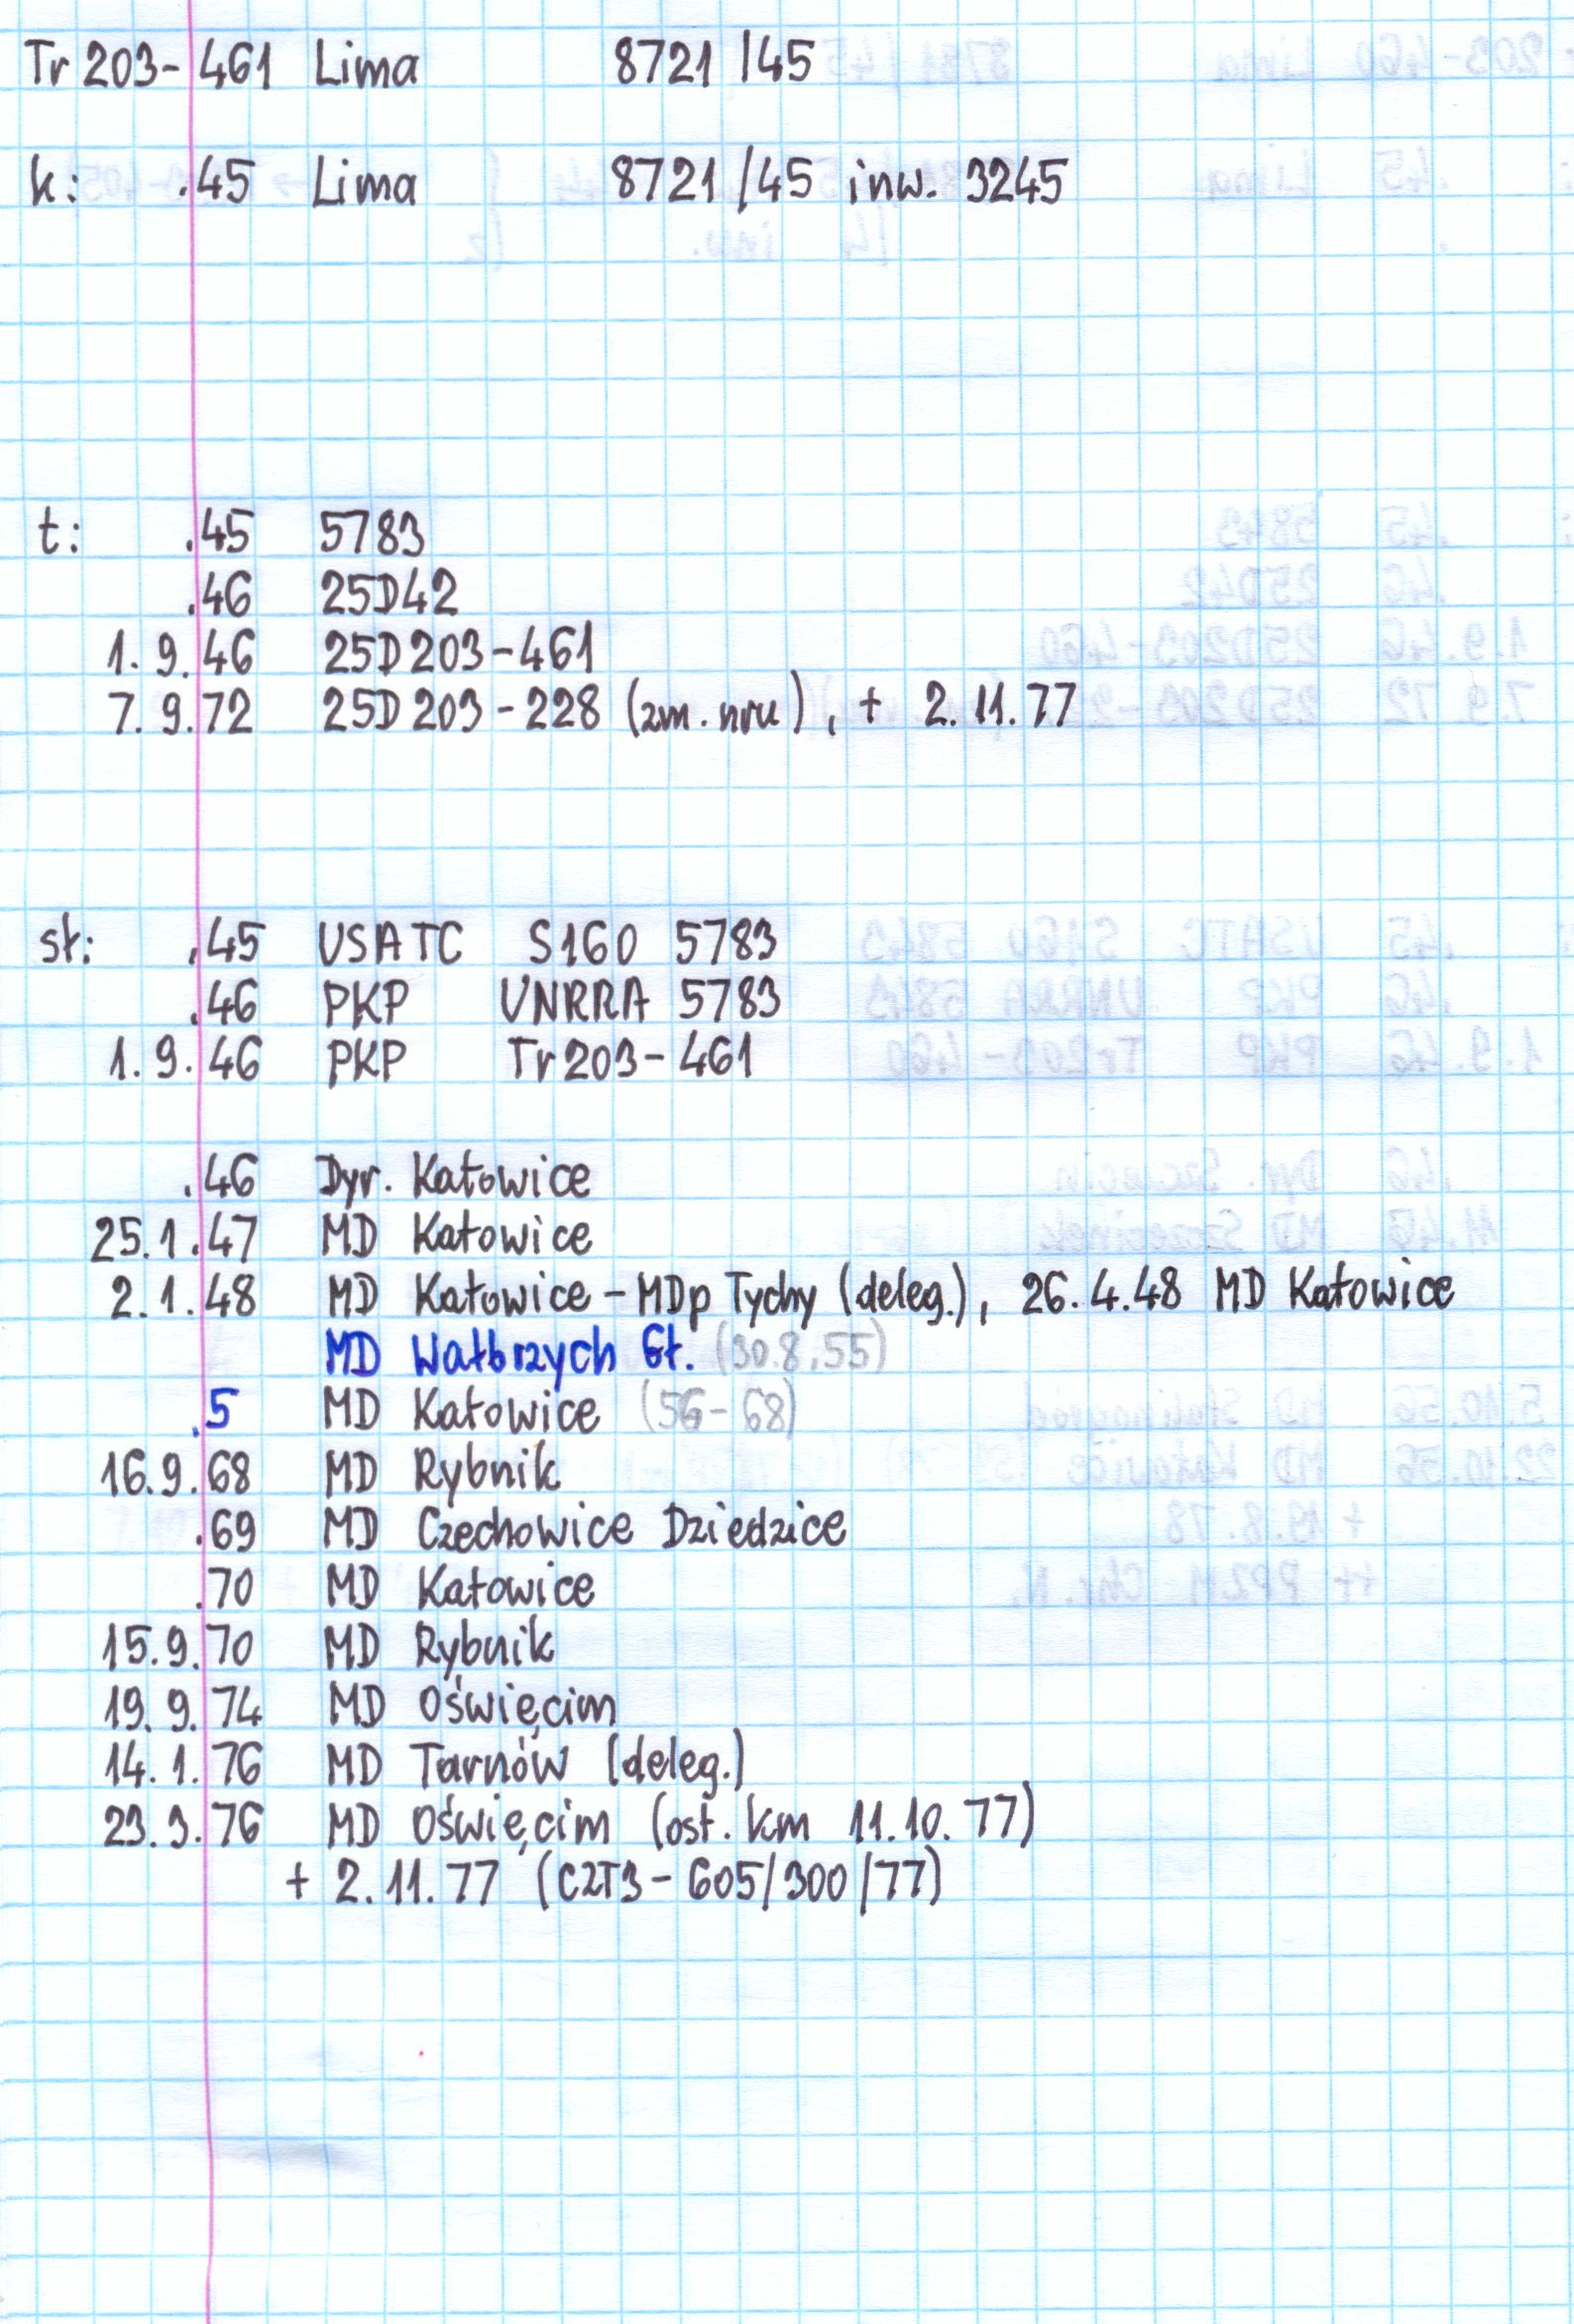 Tr 203-461 Lima 8721/45
k: .45 Lima 8721/45 inw. 3245
t: .45 5783
.46 25D42
1.9.46 25D203-461
7.9.72 25D203-228 (zm. nru), + 2.11.77
st: .45 USATC S160 5783
.46 PKP UNRRA 5783
1.9.46 PKP Tr203-461
.46 Dyr. Katowice
25.1.47 MD Katowice
2.1.48 MD Katowice - MDp Tychy (deleg.), 26.4.48 MD Katowice
MD Wałbrzych Gł. (30.8.55)
.5 MD Katowice (56-68)
16.9.68 MD Rybnik
.69 MD Czechowice Dziedzice
.70 MD Katowice
15.9.70 MD Rybnik
19.9.74 MD Oświęcim
14.1.76 MD Tarnów (deleg.)
23.3.76 MD Oświęcim (ost. km 11.10.77)
+ 2.11.77 (CZT3-605/300/77)